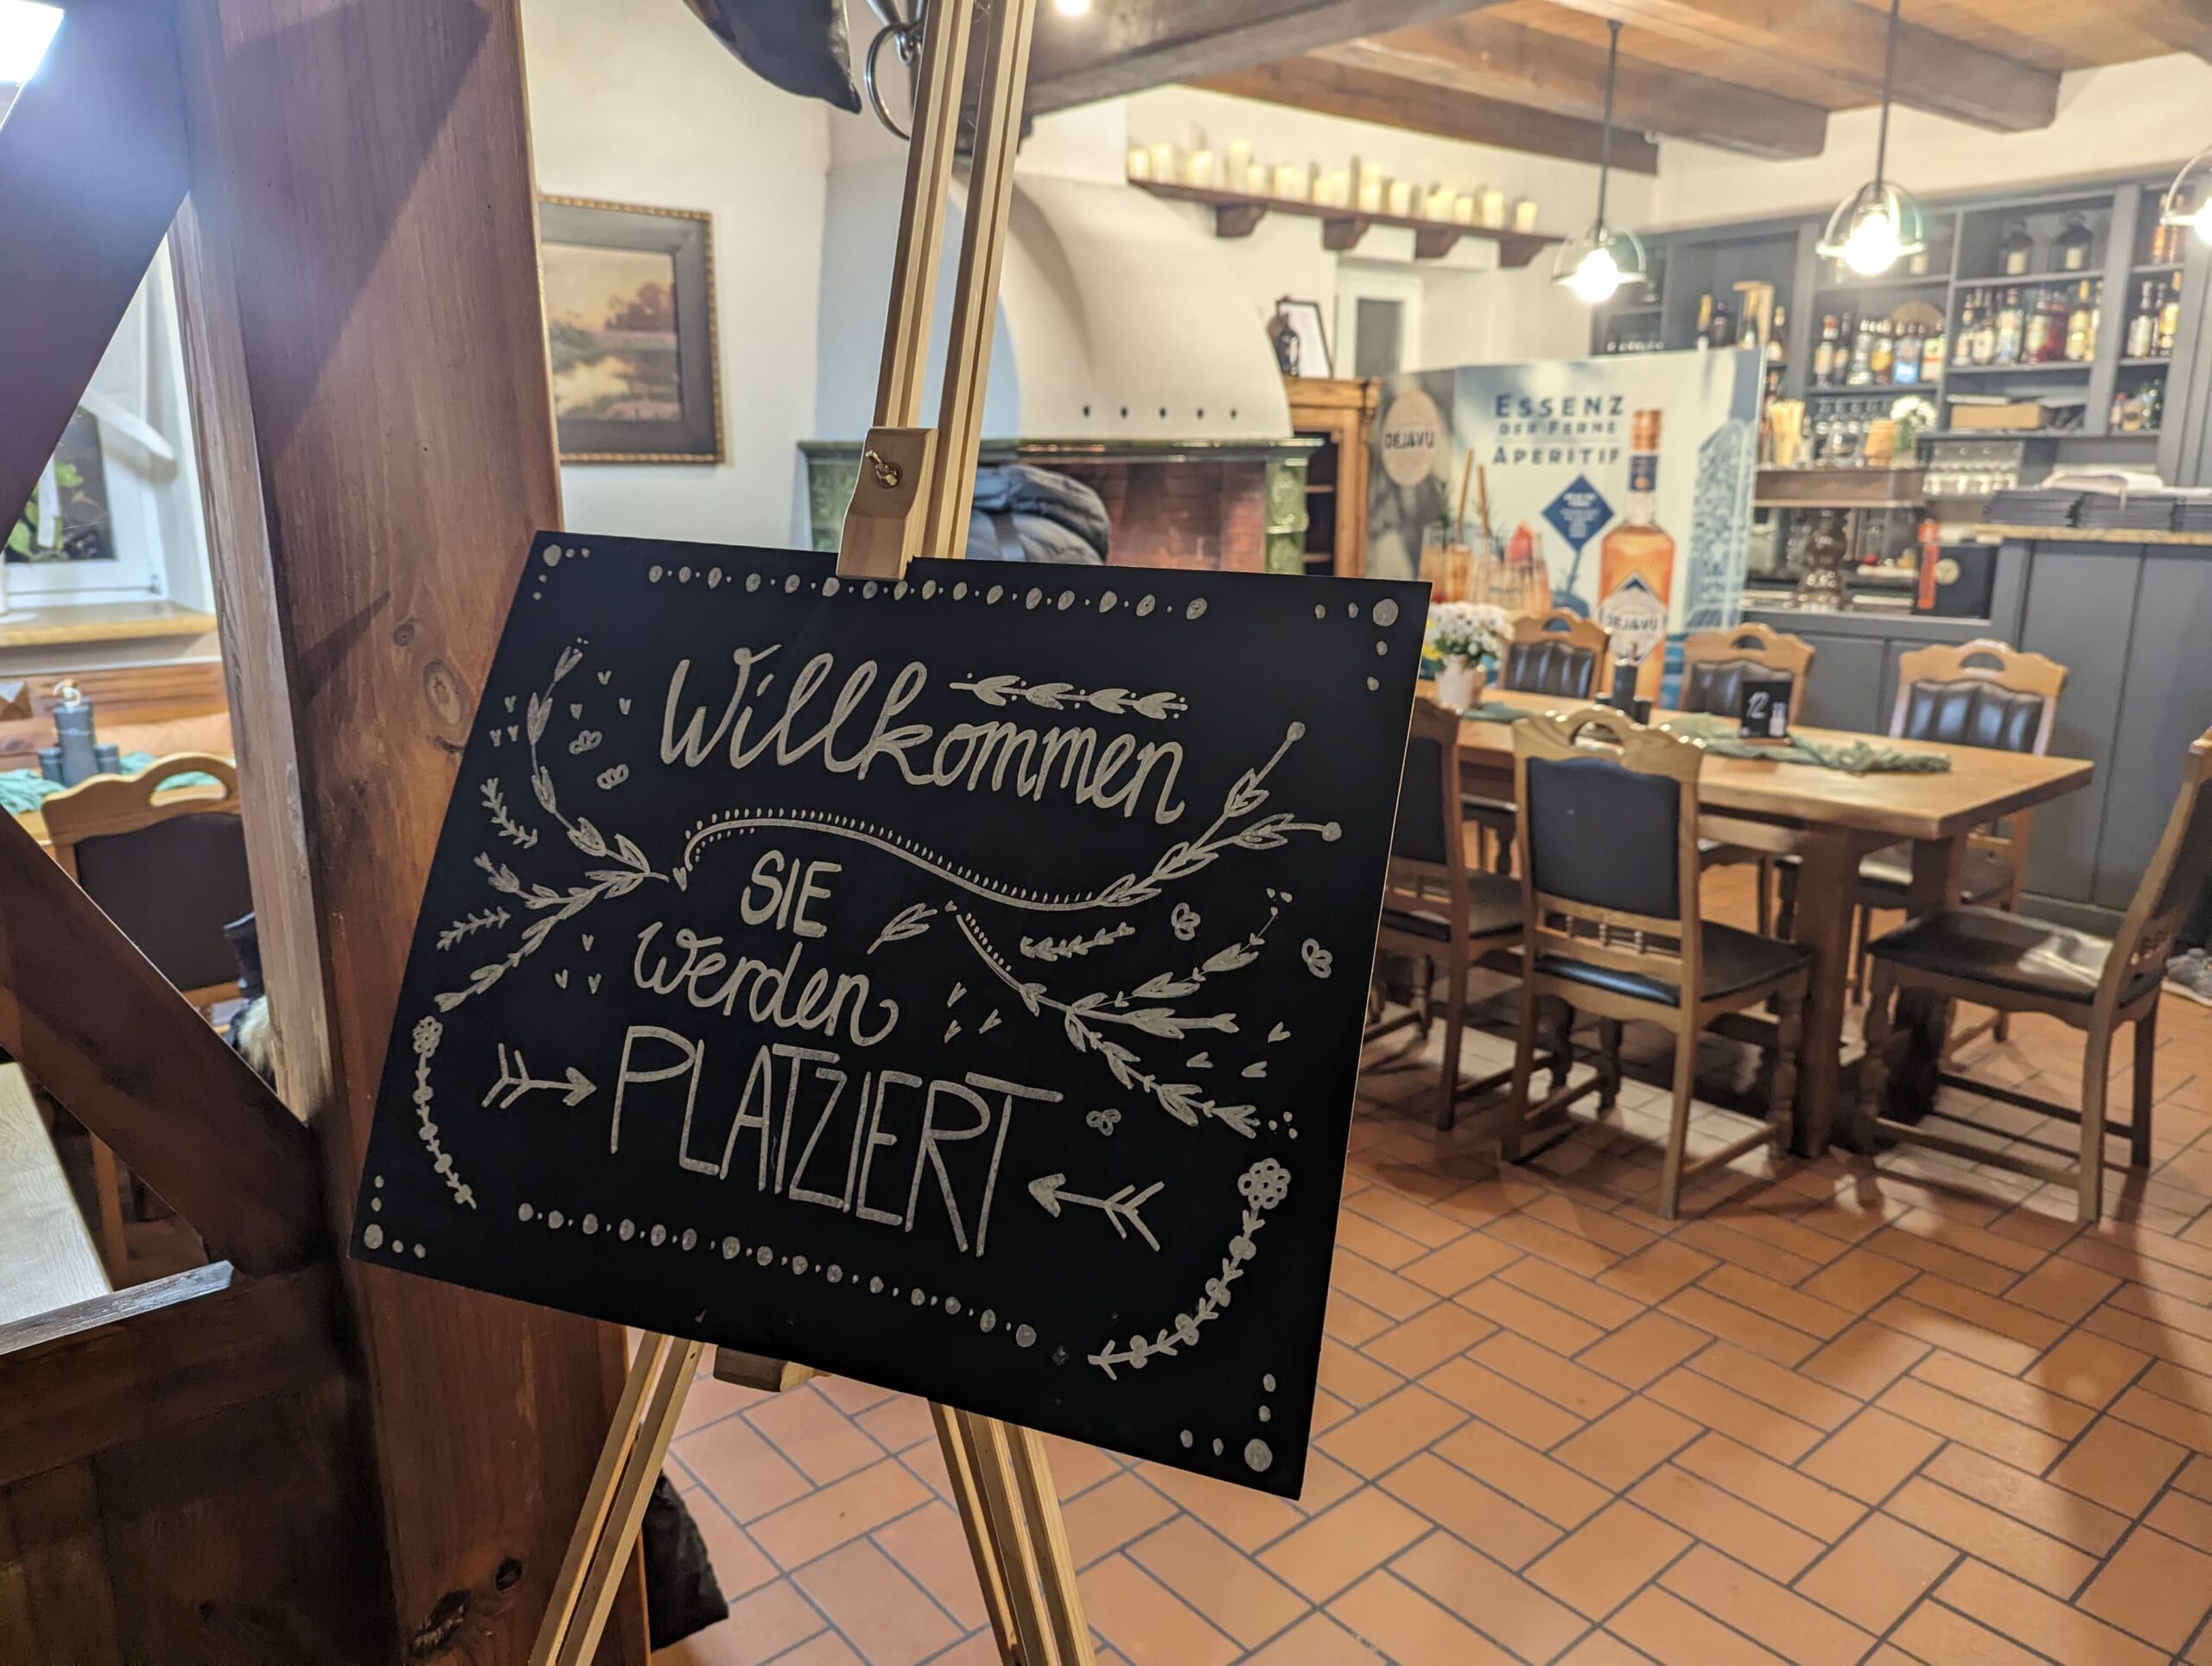 Willkommen
SIE
werden
PLATZIERT
ESSENZ
DER FERNE
APERITIF
DEJAVU
DEJAVU
12